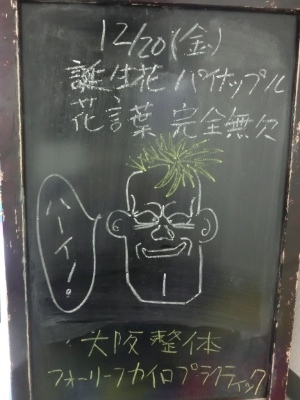 12/20(金)
誕生花 パイナップル
花言葉 完全無欠
ハーイ!
大阪整体
フォーリーフカイロプラクティック